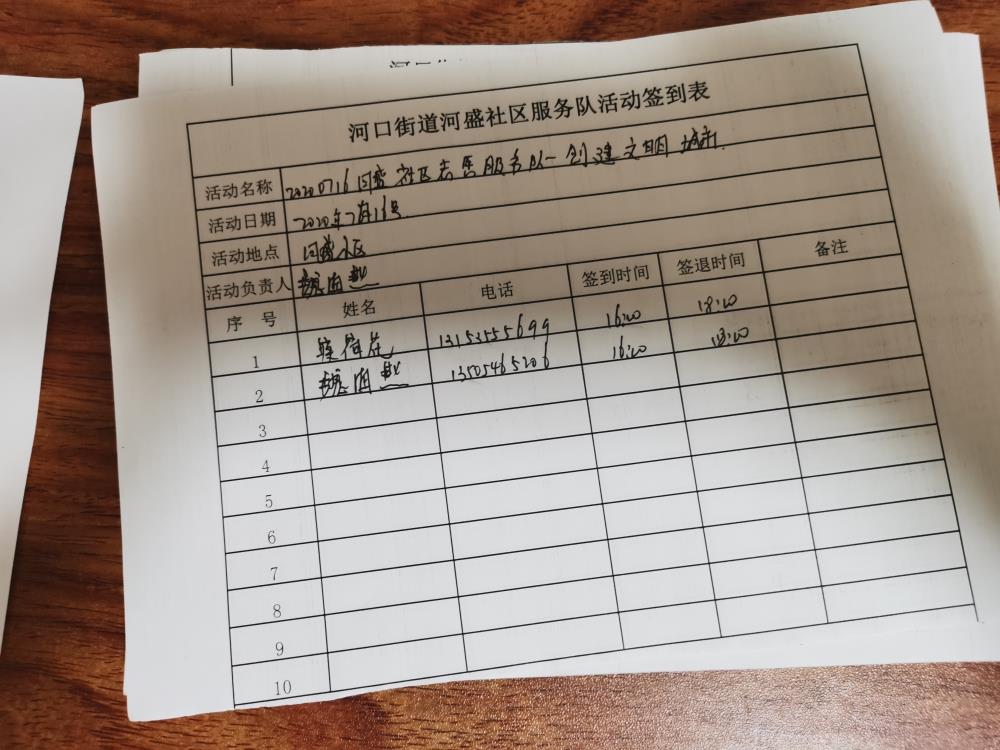 河口街道河盛社区服务队活动签到表
活动名称 20200716河盛社区志愿服务队一创建文明城市.
活动日期 2020年7月16号.
活动地点 河盛社区
活动负责人
序 号 姓名 电话 签到时间 签退时间 备注
1 荷花 13153555699 16:20 18:20
2 13505465206 16:20 18:20
3
4
5
6
7
8
9
10